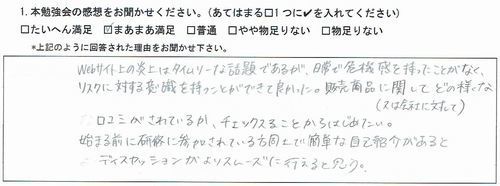 1. 本勉強会の感想をお聞かせください。(あてはまる□1つに✔を入れてください)
□たいへん満足 ☑まあまあ満足 □普通 □やや物足りない □物足りない
*上記のように回答された理由をお聞かせ下さい。
Webサイト上の炎上はタイムリーな話題であるが、日常で危機感を持ったことがなく、
リスクに対する意識を持つことができて良かった。販売商品に関してどの様な
(又は会社に対して)
口コミがされているか、チェックすることからはじめたい。
始まる前に研修に参加されている方同士で簡単な自己紹介があると
ディスカッションがよりスムーズに行えると思う。